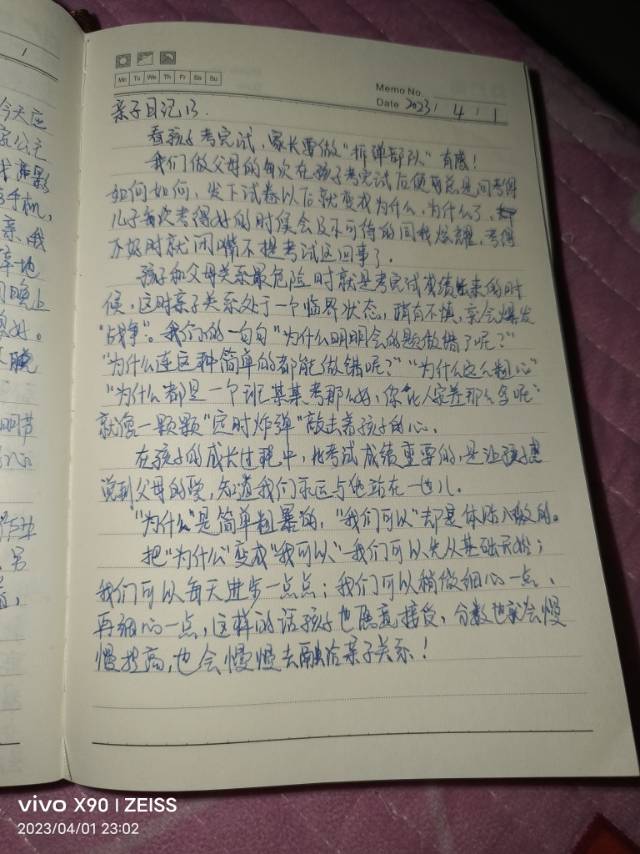 Mo Tu We Th Fr Sa Su
Memo No.
Date 2023 / 4 / 1
亲子日记13.
看孩子考完试,家长要做"拆弹部队"有感!
我们做父母的每次在孩子考完试后便总是问考得
如何如何,发下试卷以后就变成为什么,为什么了,
儿子每次考得好的时候会迫不可待的向我炫耀,考得
不好时就闭嘴不提考试这回事了。
孩子和父母关系最危险时就是考完试成绩出来的时
候,这时亲子关系处于一个临界状态,稍有不慎,就会爆发
"战争"。我们的一句句"为什么明明会的题做错了呢?"
"为什么连这种简单的都能做错呢?""为什么这么粗心"
"为什么都是一个班某某考那么好,你 比人家差那么多呢"
就像一颗颗"定时炸弹"敲击着孩子的心。
在孩子的成长过程中,比考试成绩重要的,是让孩子感
觉到父母的爱,知道我们永远与他站在一边儿。
"为什么"是简单粗暴的,"我们可以"却是体贴入微的。
把"为什么"变成"我可以"—我们可以先从基础开始;
我们可以每天进步一点点;我们可以稍微细心一点、
再细心一点,这样的话孩子也愿意接受,分数也就会慢
慢提高,也会慢慢去融洽亲子关系!
今天
手机,
晚上
vivo X90 | ZEISS
2023/04/01 23:02